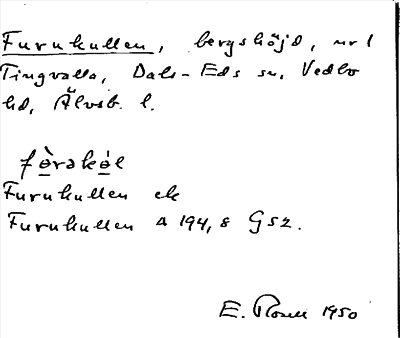 Furukullen, bergshöjd, nr 1
Tingvalla, Dals-Eds sn, Vedbo
hd, Älvsb. l.
fø̀rəkøl
Furukullen ek
Furukullen Δ 194,8 Gsz.
E. Rosell 1950